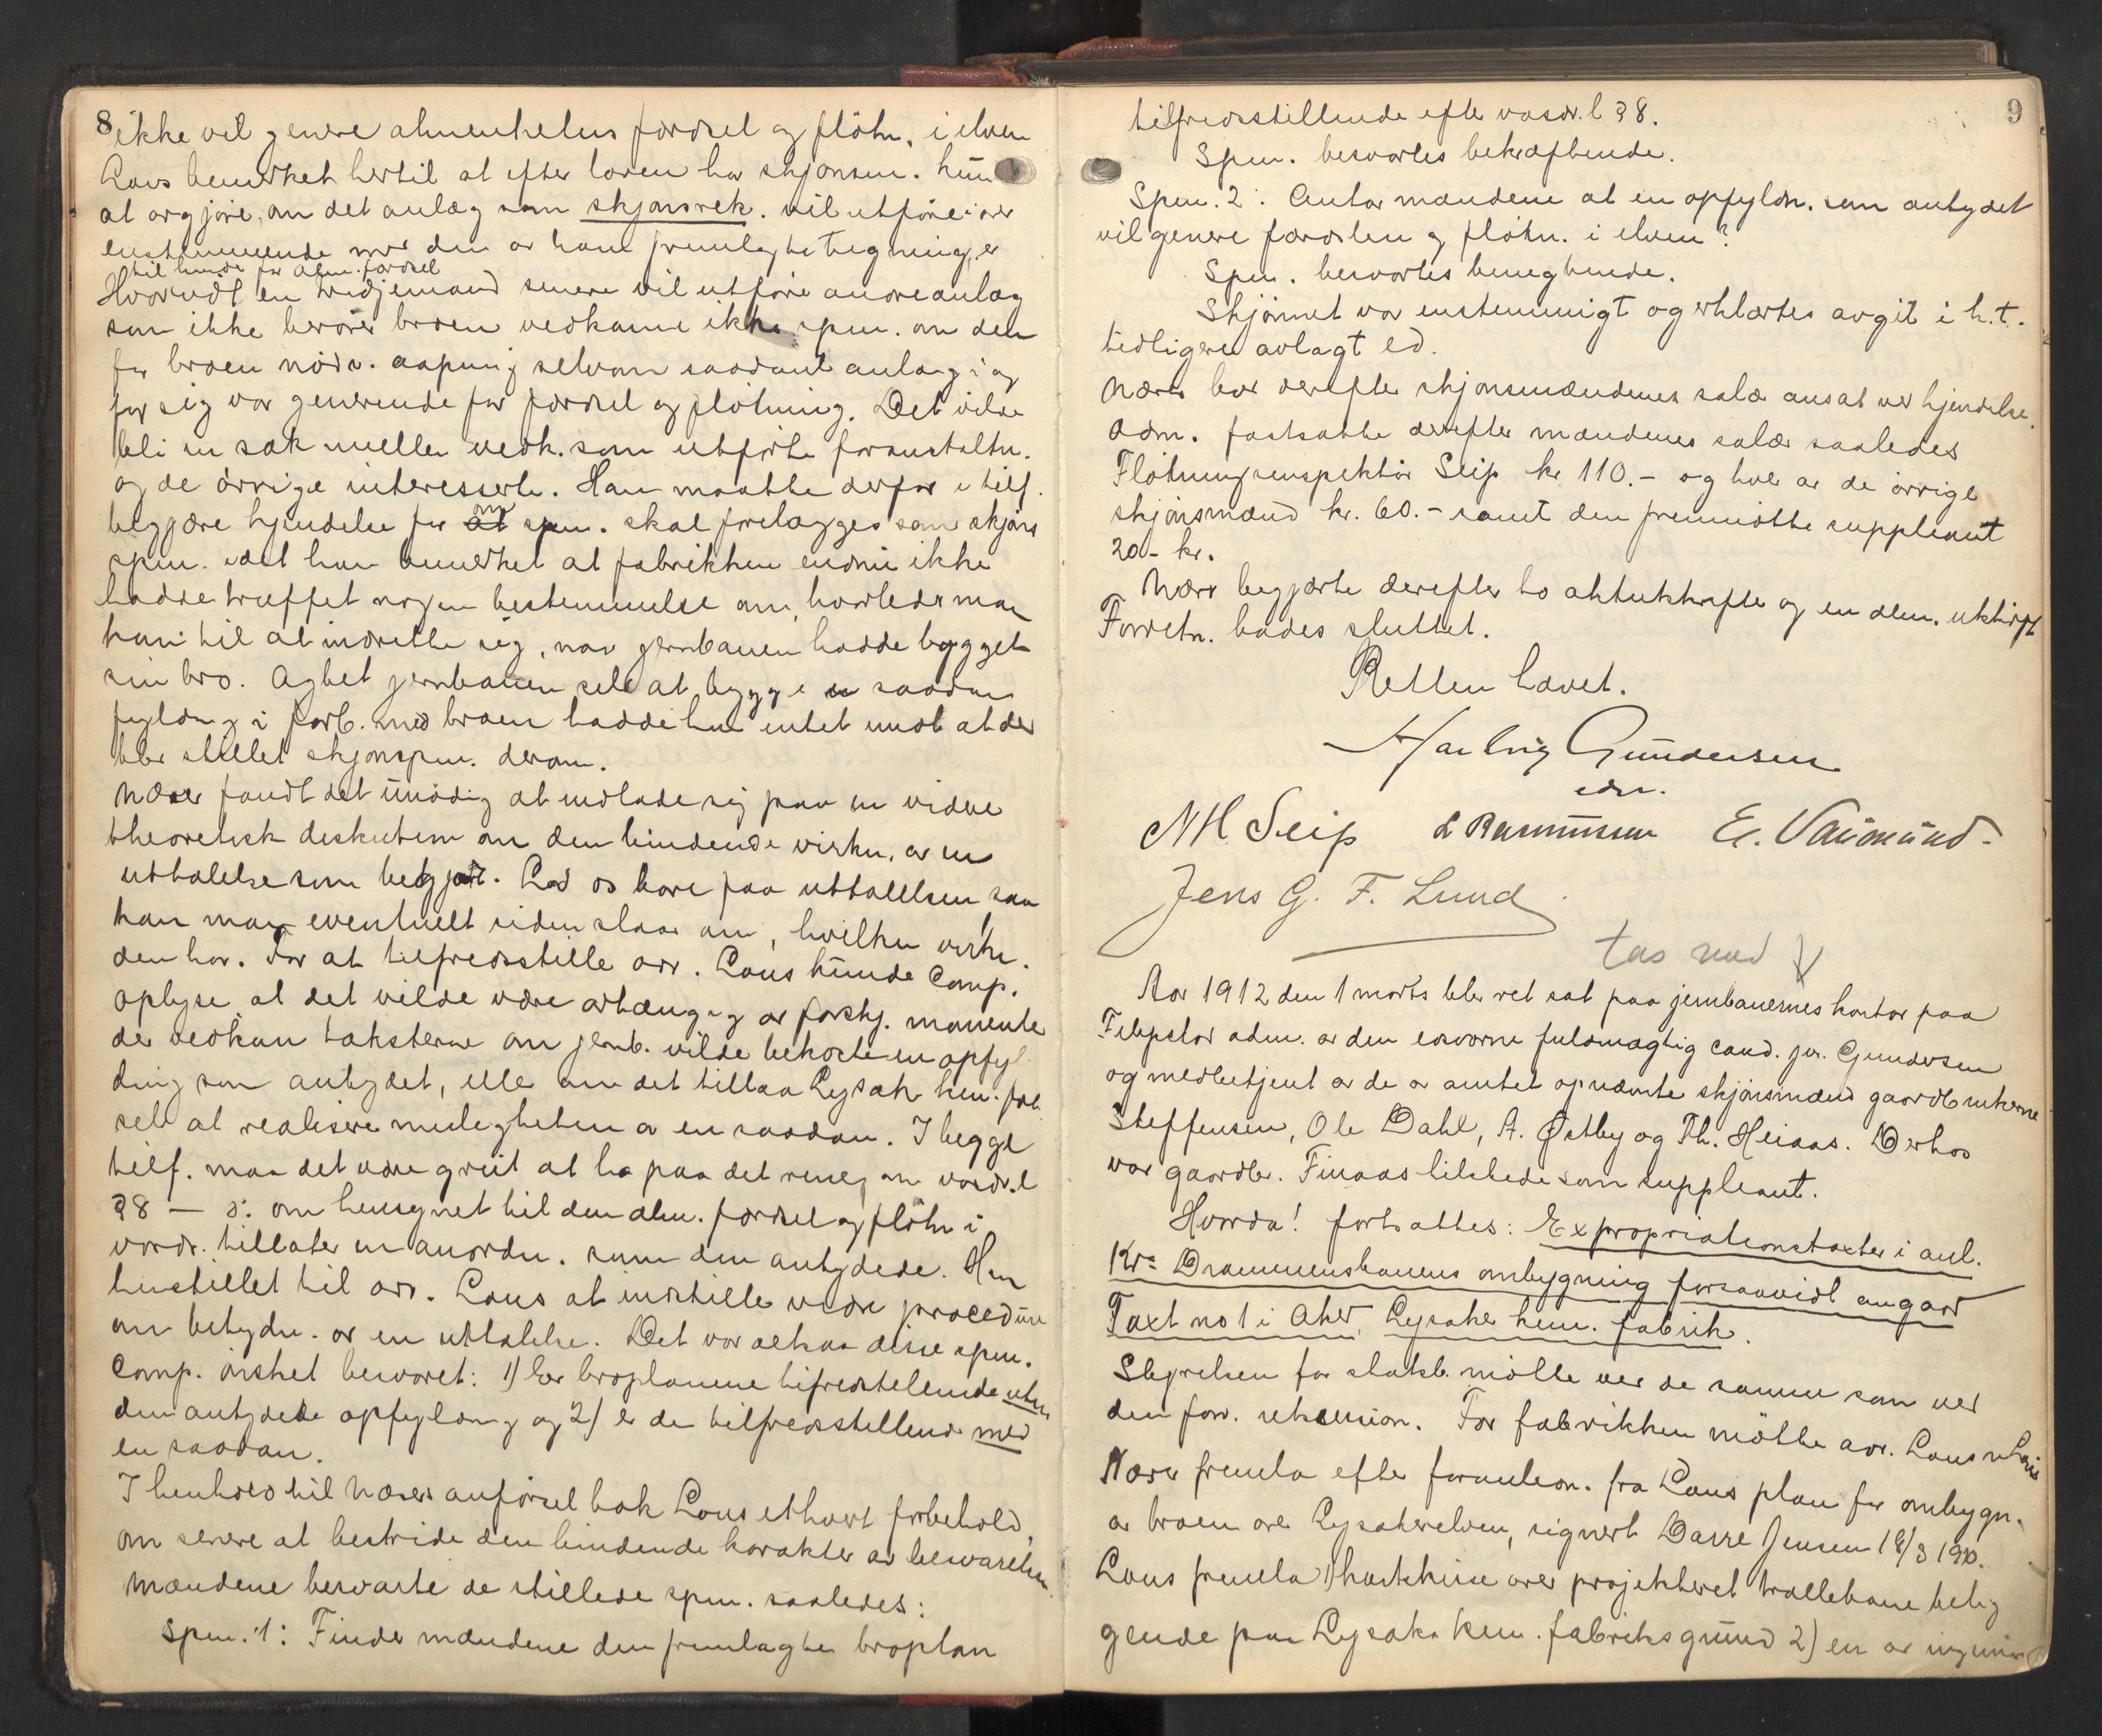 8
ikke vil genere almenhetens færdsel og flötn. i elven
Lous bemerket hertil at efter loven har skjönsm. kun
at avgjöre, om det anlæg som skjönsrek. vil utföre i over
ensstemmende med den av ham fremlagte tegning, er
til hinder for alm. færdsel
Hvorvidt en tredjemand senere vil utföre andre anlæg
som ikke berörer broen vedkomme ikke spm. om den
for broen nödv. aapning selvom saadant anlæg i og
for sig var generende for færdsel og flötning. Det vilde
bli en sak mellem vedk. som utförte foranstaltn.
og de övrige interesserte. Han maatte derfor i tilf.
begjære kjendelse for om spm. skal forelægges som skjöns
spm. idet han bemerket at fabrikken endnu ikke
hadde truffet nogen bestemmelse om, hvorledes man
kom til at indrette sig, naar jernbanen hadde bygget
sin bro. Agtet jernbanen selv at bygge en saadan
fyldning i forb. med broen hadde han intet imot at der
blev stillet skjönsspm. derom.
Næser fandt det unödig at indlade sig paa en videre
theoretisk diskusion om den bindende virkn. av en
uttalelse som begjært. Lad os bare faa uttalelsen saa
kan man eventuelt siden slaas om, hvilken virkn.
den har. For at tilfredsstille adv. Lous kunde Comp.
oplyse at det vilde være avhængig av forskj. momenter
der vedkom taksterne om jernb. vilde bekoste en opfyl
ding som antydet, eller om det tillaa Lysaker kem. fab.
selv at realisere muligheten av en saadan. I begge
tilf. maa det være greit at ha paa det rene, om vasdr.l
§ 38 — ɔ: om hensynet til den alm. færdsel og flötn i
vasdr. tillater en anordn. som den antydede. Han
henstillet til adv. Lous at indstille videre procedure
om betydn. av en uttalelse. Det var altsaa disse spm.
Comp. önsket besvaret: 1) Er broplanene tilfredsstelende uten
den antydede opfyldning og 2) er de tilfredsstillende med
en saadan.
I henhold til Næsers anförsel tok Lous ethvert forbehold,
om senere at bestride den bindende karakter av besvarelsen
Mændene besvarte de stillede spm. saaledes:
Spm. 1: Finder mændene den fremlagte broplan
9
tilfredsstillende efter vasdr. l § 38.
Spm. besvartes bekræftende.
Spm. 2: Antar mændene at en opfyldn. som antydet
vil genere færdslen og flötn. i elven?
Spm. besvartes benegtende.
Skjönnet var enstemmigt og erklærtes avgit i h.t.
tidligere avlagt ed.
Næser bad derefter skjönsmændenes salær ansat ved kjendelse.
Adm. fastsatte derefter mændenes salær saaledes
Flötningsinspektör Seip kr. 110.- og hver av de övrige
skjönsmænd kr. 60.- samt den fremmötte suppleant
20- kr.
Næser begjærte derefter to aktutskrifter og en alm. utskrift
Forretn. bades sluttet.
Retten hævet.
Hartvig Gundersen
edsv.
N H. Seip L Rasmussen E. Vaumund-
Jens G. F. Lund
tas med
Aar 1912 den 1 marts blev ret sat paa jernbanernes kontor paa
Filipstad adm. av den edsvorne fuldmægtig cand. jur. Gundersen
og medbetjent av de av amtet opnævnte skjönsmænd gaardbrukerne
Steffensen, Ole Dahl, A. Østby og Th. Heiaas. Derhos
var gaardbr. Finaas tilstede som suppleant.
Hvorda! fortsattes: Expropriationstakster i anl.
Kr.a Drammensbanens ombygning forsaavidt angaar
Taxt no 1 i Aker, Lysaker kem. fabrik.
Styrelsen for statsb. mötte ved de samme som ved
den forr. seksession. For fabrikken mötte adv. Lous
Næser fremla efter foranledn. fra Lous plan for ombygn.
av broen over Lysakerelven, signert Darre Jensen 18/3 1910.
Lous fremla 1) kartskisse over projektert trallebane belig
gende paa Lysaker kem. fabriks grund 2) en av ingeniör